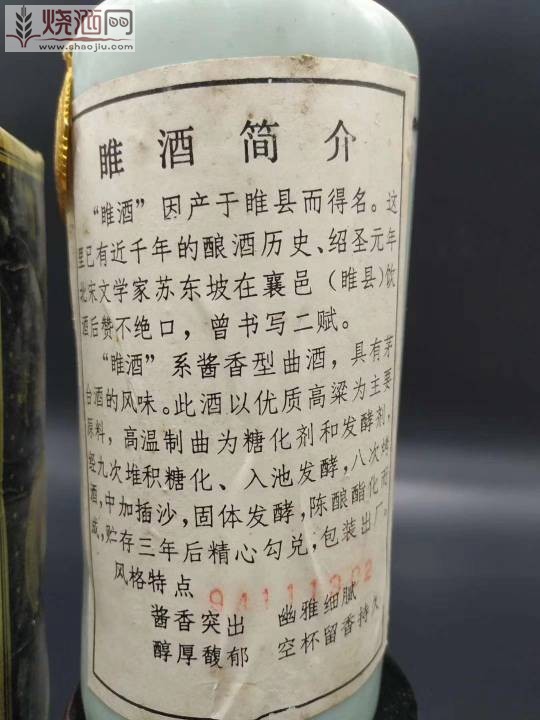 烧酒网
www.shaojiu.com
睢酒简介
“睢酒”因产于睢县而得名。这
里已有近千年的酿酒历史、绍圣元年
北宋文学家苏东坡在襄邑（睢县）饮
酒后赞不绝口，曾书写二赋。
“睢酒”系酱香型曲酒，具有茅
台酒的风味。此酒以优质高粱为主要
原料，高温制曲为糖化剂和发酵剂，
经九次堆积糖化、入池发酵，八次烤
酒，中加插沙，固体发酵，陈酿酯化而
成，贮存三年后精心勾兑，包装出厂。
风格特点
94111302
酱香突出 幽雅细腻
醇厚馥郁 空杯留香持久